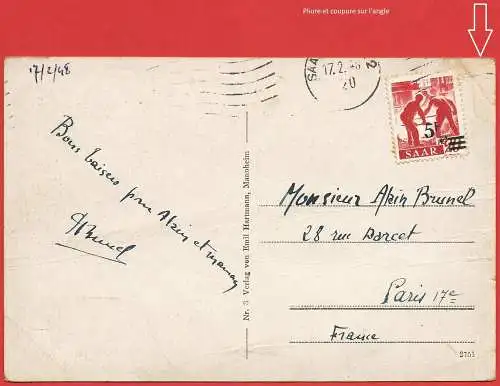 Pliure et coupure sur l'angle
17/2/48
SAA
17.2.
20
2
5F
SAAR
Bons baisers pour Alain et maman
ABrunel
Nr. 3 Verlag von Emil Hartmann, Mannheim
Monsieur Alain Brunel
28 rue Darcet
Paris 17e
France